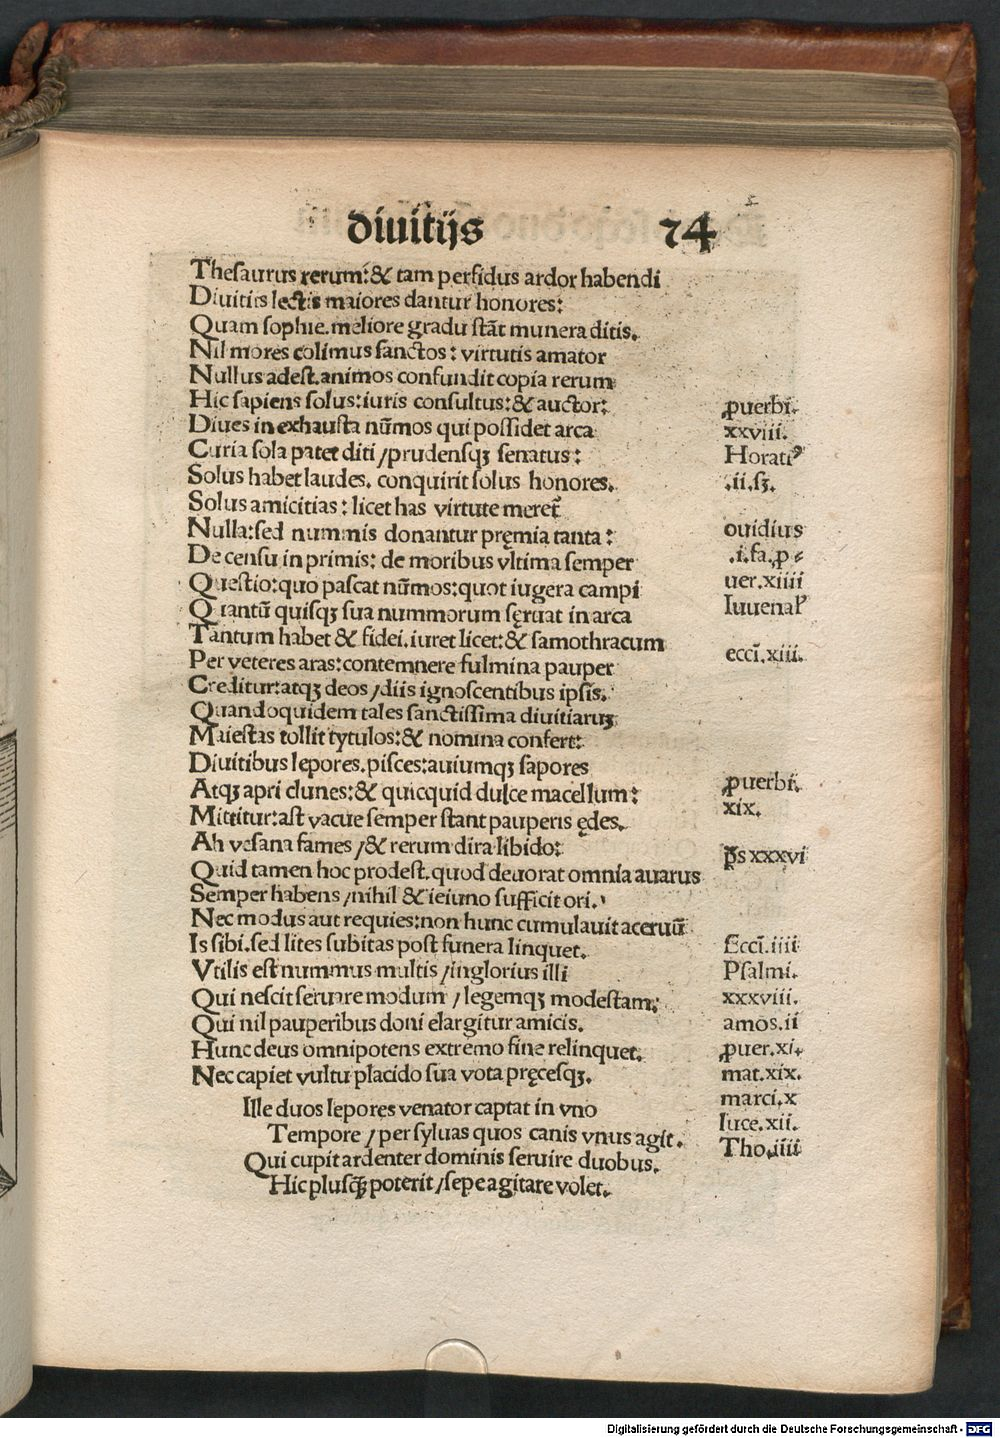 diuitijs 24
Thesaurus rerum: & tam perfidus ardor habendi
Diuitiis lectis maiores dantur honores:
Quam sophie. meliore gradu stāt munera ditis.
Nil mores colimus sanctos: virtutis amator
Nullus adest. animos confundit copia rerum
Hic sapiens solus: iuris consultus: & auctor:
Diues in exhausta nūmos qui possidet arca
Curia sola patet diti / prudensqꝫ senatus:
Solus habet laudes. conquirit solus honores.
Solus amicitias: licet has virtute meret᷑
Nulla: sed nummis donantur pręmia tanta:
De censu in primis: de moribus vltima semper
Questio: quo pascat nūmos: quot iugera campi
Quantū quisqꝫ sua nummorum sęruat in arca
Tantum habet & fidei. iuret licet: & samothracum
Per veteres aras: contemnere fulmina pauper
Creditur: atqꝫ deos / diis ignoscentibus ipsis.
Quandoquidem tales sanctissima diuitiaruꝫ
Maiestas tollit tytulos: & nomina confert:
Diuitibus lepores. pisces: auiumqꝫ sapores
Atqꝫ apri clunes: & quicquid dulce macellum:
Mittitur: ast vacue semper stant pauperis ędes.
Ah vesana fames / & rerum dira libido:
Quid tamen hoc prodest. quod deuorat omnia auarus
Semper habens / nihil & ieiuno sufficit ori.
Nec modus aut requies: non hunc cumulauit aceruū
Is sibi. sed lites subitas post funera linquet.
Vtilis est nummus multis / inglorius illi
Qui nescit seruare modum / legemqꝫ modestam:
Qui nil pauperibus doni elargitur amicis.
Hunc deus omnipotens extremo fine relinquet.
Nec capiet vultu placido sua vota pręcesqꝫ.
Ille duos lepores venator captat in vno
Tempore / per syluas quos canis vnus agit.
Qui cupit ardenter dominis seruire duobus.
Hic plusqꝫ poterit / sepe agitare volet.
ꝓuerbi.
xxviii.
Horatiꝰ
.ii.sꝫ.
ouidius
.i.fa.ꝓ
uer.xiiii
Iuuenal
eccī.xiii.
ꝓuerbi.
xix.
ps xxxvi
Eccī.iiii
Psalmi.
xxxviii.
amos.ii
ꝓuer.xi.
mat.xix.
marci.x
luce.xii.
Tho.iiii
Digitalisierung gefördert durch die Deutsche Forschungsgemeinschaft - DFG